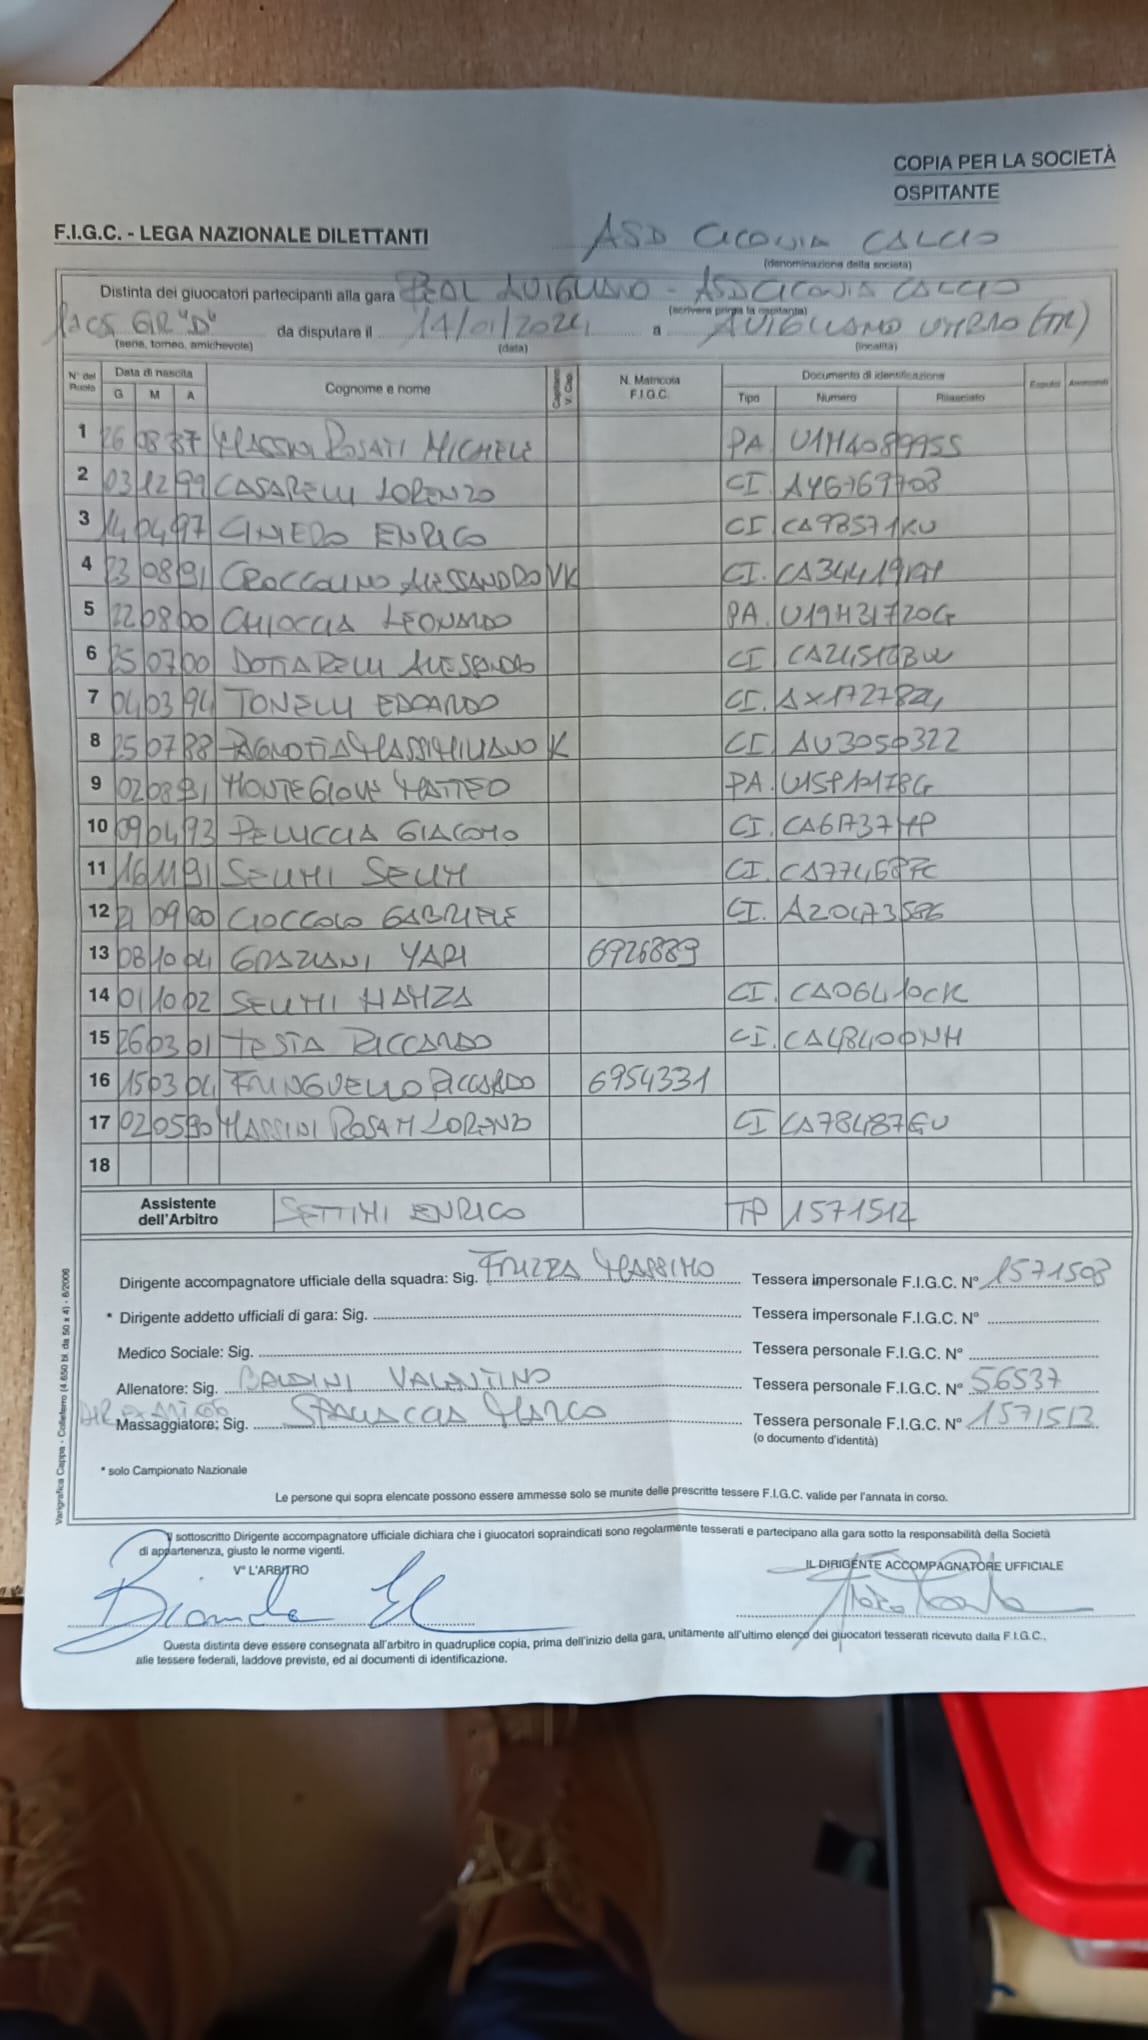 COPIA PER LA SOCIETÀ
OSPITANTE
F.I.G.C. - LEGA NAZIONALE DILETTANTI
ASD CICONIA CALCIO
(denominazione della società)
Distinta dei giuocatori partecipanti alla gara REAL AVIGLIANO - ASD CICONIA CALCIO
(scrivere prima la ospitante)
GIR "D" da disputare il 14/01/2024 a AVIGLIANO UMBRO (TR)
(serie, torneo, amichevole) (data) (località)
N° del Ruolo Data di nascita G M A Cognome e nome Capitano V. Cap. N. Matricola F.I.G.C. Documento di identificazione Tipo Numero Rilasciato Espulsi Ammoniti
1 26 08 87 MASSINI ROSATI MICHELE PA U1H408995S
2 03 12 99 CASARELLI LORENZO CI AY6769708
3 14 04 97 CINIERO ENRICO CI CA98571KU
4 23 08 91 CROCCOLINO ALESSANDRO VK CI. CA34419
5 22 08 00 CHIOCCIA LEONARDO PA. U19H31720G
6 25 07 00 DOTTARELLI ALESSANDRO CI CA24518BW
7 04 03 94 TONELLI EDOARDO CI. AX1727824
8 25 07 88 PAGNOTTA MASSIMILIANO K CI. AU3050322
9 02 08 91 MONTEGIOVE MATTEO PA. U15P12178G
10 09 04 93 PELUCCIA GIACOMO CI.
11 16 11 91 SELIMI SELIM CI. CA77468FC
12 21 09 00 CIOCCOLO GABRIELE CI.
13 08 10 04 GRAZIANI YARI 6926889
14 01 10 02 SELIMI HAMZA CI. CA06410CK
15 26 03 01 TESTA RICCARDO CI. CA48400NH
16 15 03 04 FRINGUELLO RICCARDO 6954331
17 02 05 90 MASSINI ROSATI LORENZO CI CA78487GU
18
Assistente dell'Arbitro SETTIMI ENRICO TP 1571512
Dirigente accompagnatore ufficiale della squadra: Sig. FRIZZA MASSIMO Tessera impersonale F.I.G.C. N° 1571508
* Dirigente addetto ufficiali di gara: Sig. Tessera impersonale F.I.G.C. N°
Medico Sociale: Sig. Tessera personale F.I.G.C. N°
Allenatore: Sig. BALDINI VALENTINO Tessera personale F.I.G.C. N° 56537
Massaggiatore: Sig. MARCO Tessera personale F.I.G.C. N° 1571513
(o documento d'identità)
* solo Campionato Nazionale
Le persone qui sopra elencate possono essere ammesse solo se munite delle prescritte tessere F.I.G.C. valide per l'annata in corso.
Il sottoscritto Dirigente accompagnatore ufficiale dichiara che i giuocatori sopraindicati sono regolarmente tesserati e partecipano alla gara sotto la responsabilità della Società
di appartenenza, giusto le norme vigenti.
V° L'ARBITRO IL DIRIGENTE ACCOMPAGNATORE UFFICIALE
Questa distinta deve essere consegnata all'arbitro in quadruplice copia, prima dell'inizio della gara, unitamente all'ultimo elenco dei giuocatori tesserati ricevuto dalla F.I.G.C.,
alle tessere federali, laddove previste, ed ai documenti di identificazione.
Varigrafica Cappa - Colleferro (4.650 bl. da 50 x 4) - 6/2006